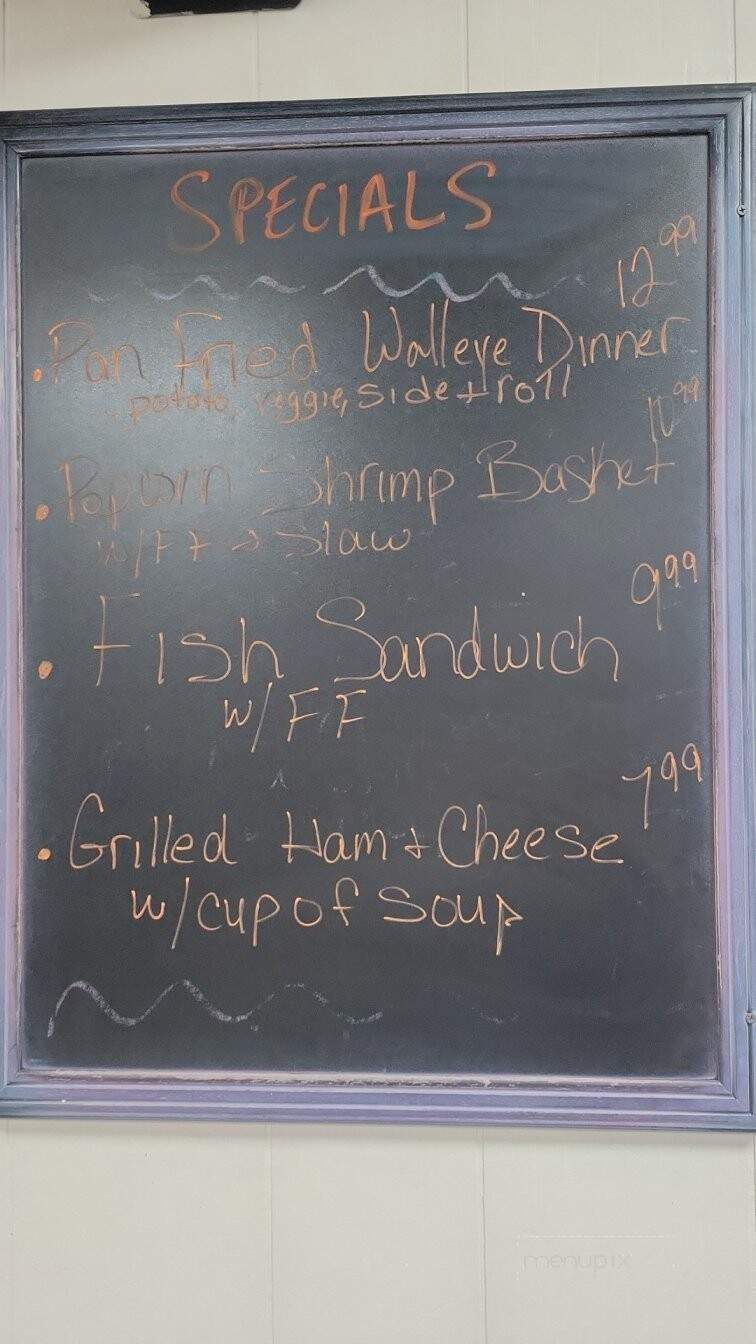 SPECIALS
12.99
• Pan Fried Walleye Dinner
potato, veggie, side + roll
10.99
• Popcorn Shrimp Basket
w/FF + Slaw
9.99
• Fish Sandwich
w/ FF
7.99
• Grilled Ham + Cheese
w/cup of soup
menupix